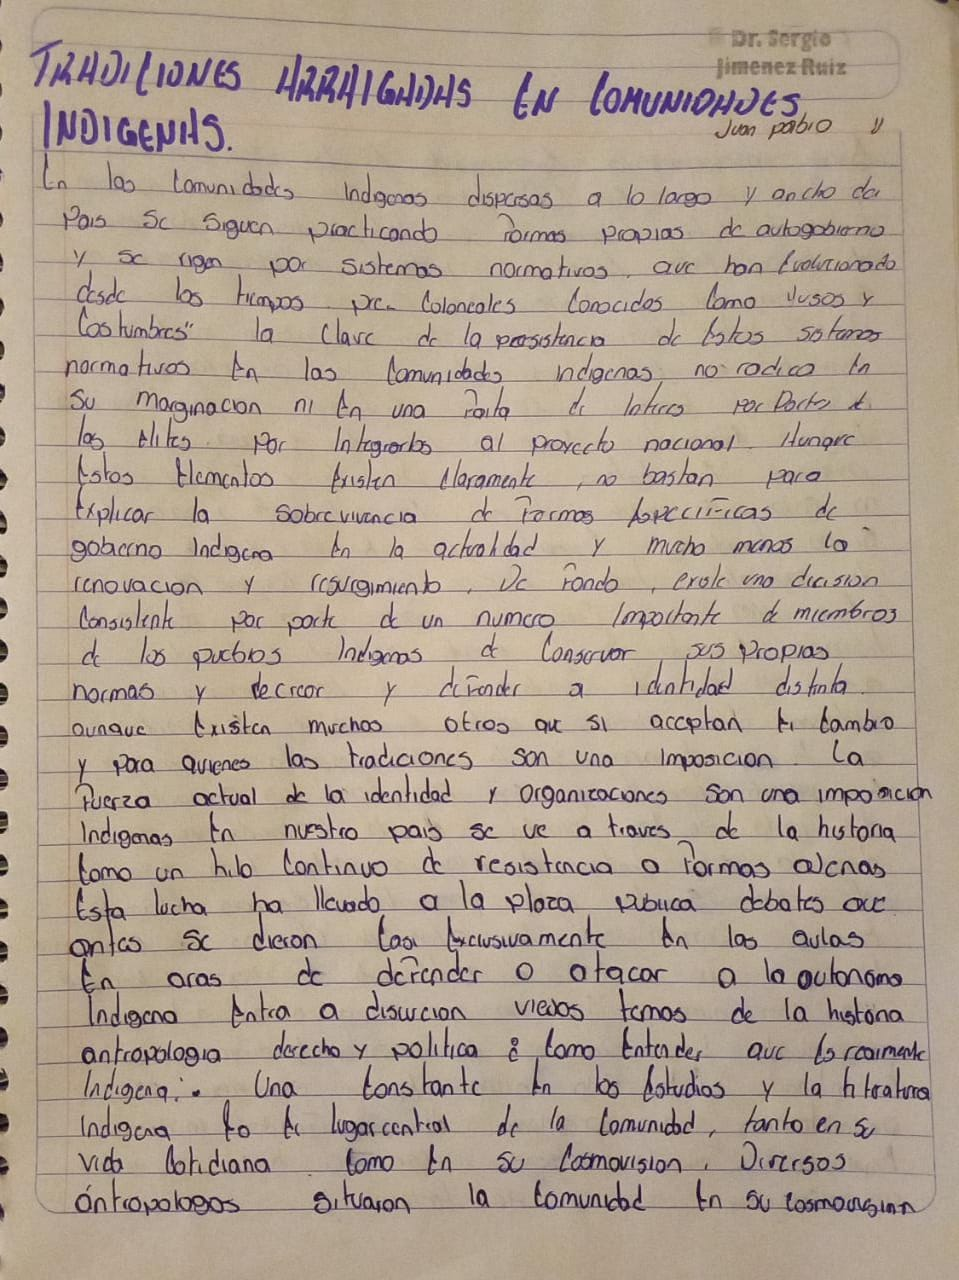 Dr. Sergio
Jimenez Ruiz
TRADICIONES ARRAIGADAS EN COMUNIDADES
INDIGENAS.
Juan pablo
En las Comunidades Indigenas dispersas a lo largo y ancho del
Pais se siguen practicando formas propias de autogobierno
y se rigen por sistemas normativos, que han Evolucionado
desde los tiempos pre-Coloneales Conocidos Como "usos y
Costumbres" la Clave de la persistencia de Estos sistemas
normativos En las Comunidades indigenas, no radica En
Su marginacion ni En una falta de Interes por Parte de
las Elites por Integrarlos al proyecto nacional. Aunque
Estos Elementos Existen Claramente, no bastan para
Explicar la sobrevivencia de Formas Especificas de
gobierno Indigena En la actualidad y mucho menos la
renovacion y resurgimiento, De Fondo, existe una decision
Consistente por parte de un numero Importante de miembros
de los pueblos Indigenas de Conservar sus propias
normas y de crear y defender a identidad distinta
aunque Existen muchos otros que si aceptan El Cambio
y para quienes las tradiciones son una imposicion La
Fuerza actual de la identidad y organizaciones son una imposicion
Indigenas En nuestro pais se ve a traves de la historia
Como un hilo Continuo de resistencia a formas ajenas
Esta lucha ha llevado a la plaza publica debates que
antes se dieron Casi Exclusivamente En las aulas
En aras de defender o atacar a la autonoma
Indigena Entra a discucion viejos temas de la historia
antropologia derecho y politica ¿Como Entender que Es realmente
Indigena? Una Constante En los Estudios y la literatura
Indigena Es El lugar central de la Comunidad, tanto en su
vida Cotidiana Como En su Cosmovision. Diversos
antropologos situaron la Comunidad En su Cosmovision